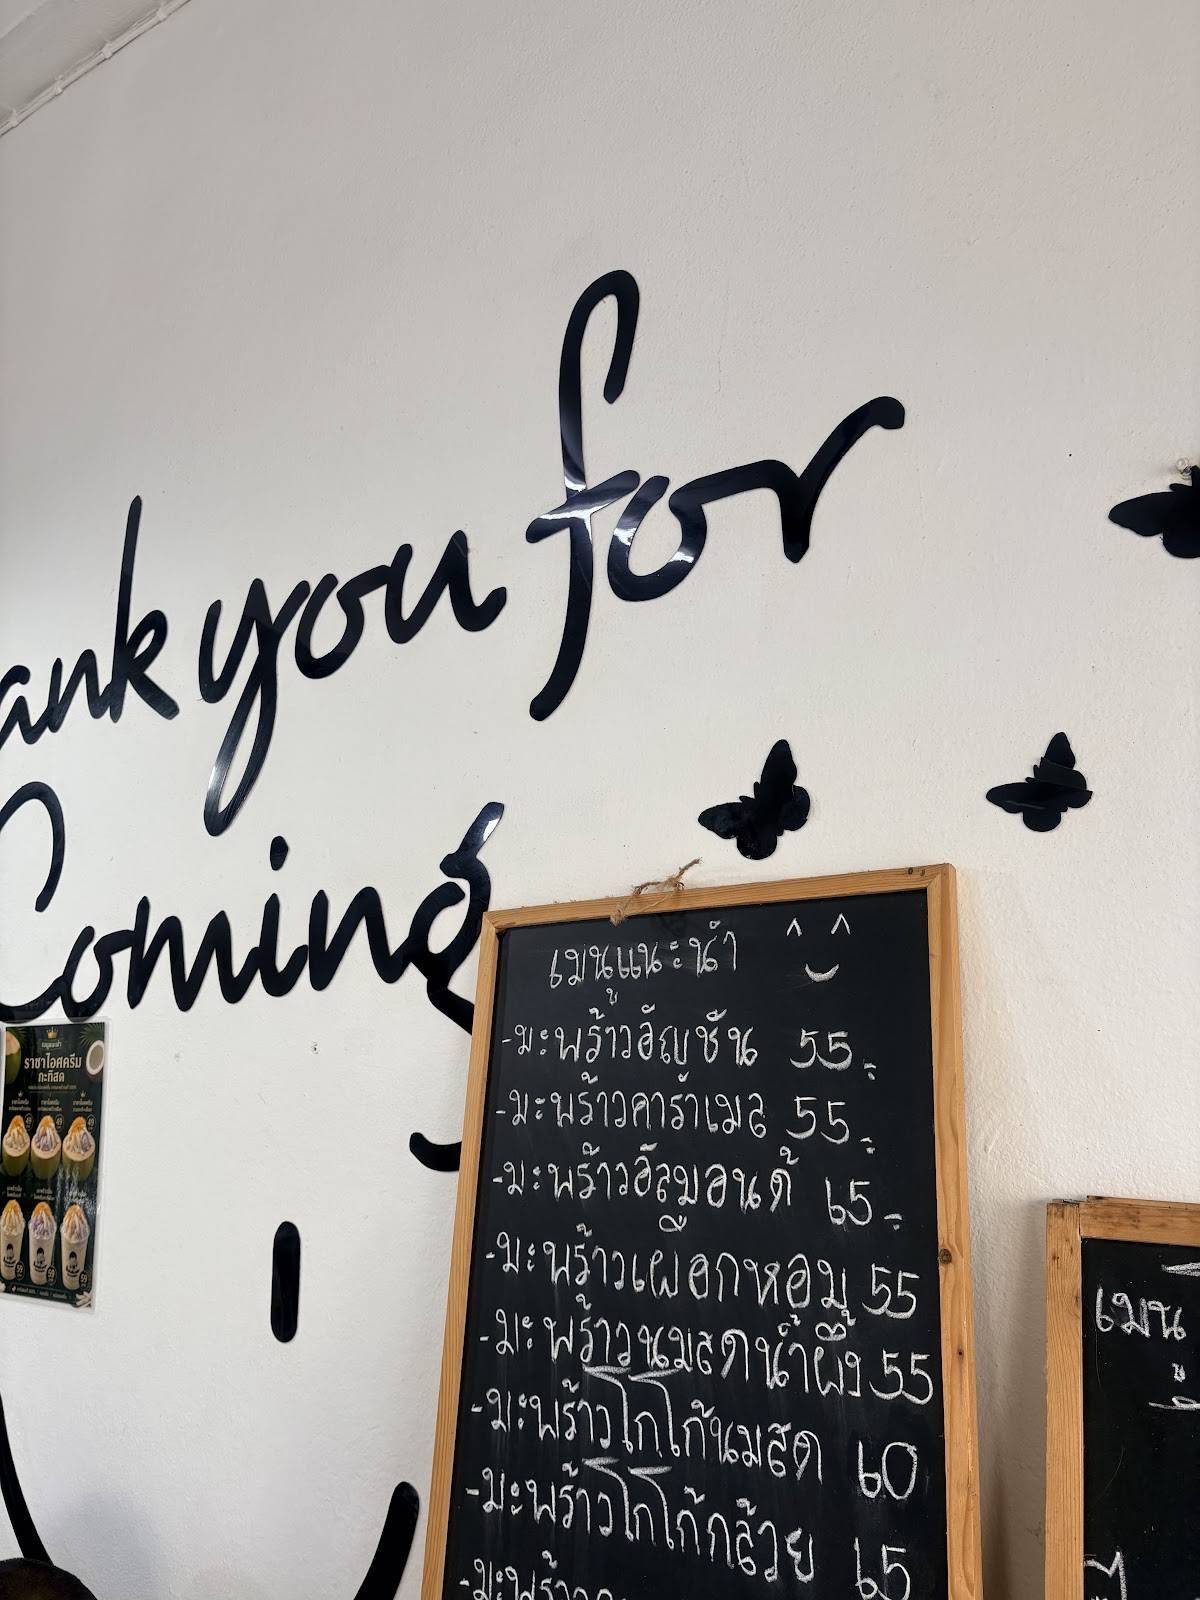 ank you for
Coming
เมนูแนะนำ
-มะพร้าวอัญชัน 55.-
-มะพร้าวคาร์าเมล 55.-
-มะพร้าวอัลมอนด์ 65.-
-มะพร้าวเผือกหอม 55
-มะพร้าวนมสดน้ำผึ้ง 55
-มะพร้าวโกโก้นมสด 60
-มะพร้าวโกโก้กล้วย 65
-มะพร้าว
เมนู
เมนูแนะนำ
ราชาไอศครีม
กะทิสด